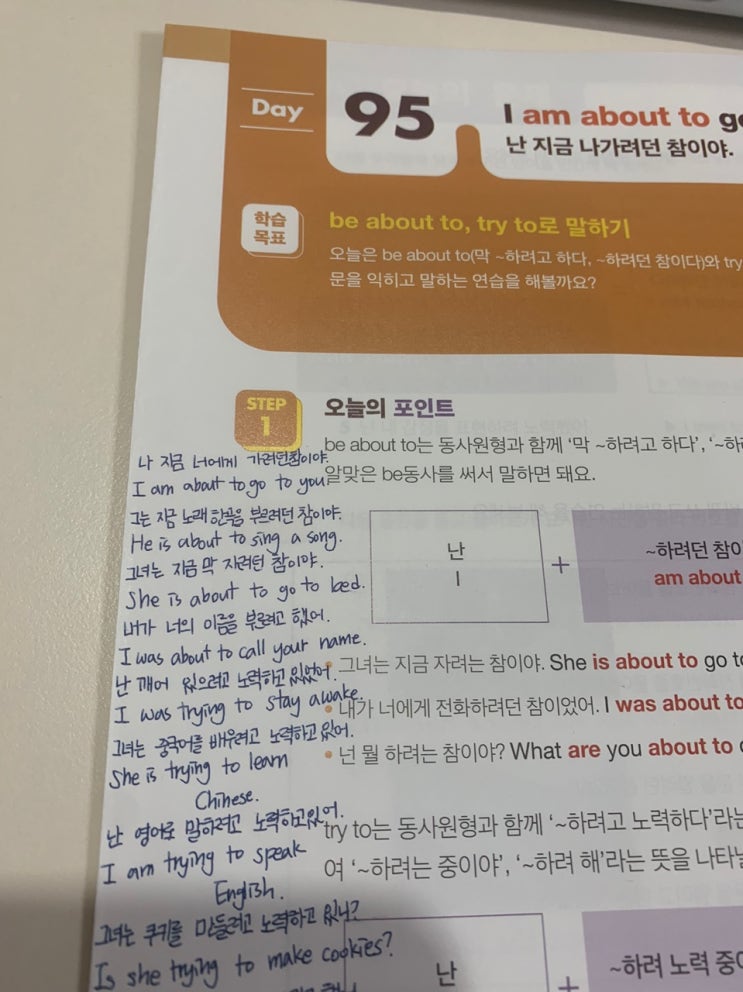 Day
95
I am about to go
난 지금 나가려던 참이야.
학습
목표
be about to, try to로 말하기
오늘은 be about to(막 ~하려고 하다, ~하려던 참이다)와 try
문을 익히고 말하는 연습을 해볼까요?
STEP
1
오늘의 포인트
be about to는 동사원형과 함께 '막 ~하려고 하다', '~하
알맞은 be동사를 써서 말하면 돼요.
난
I
+
~하려던 참이
am about
그녀는 지금 자려는 참이야. She is about to go to
내가 너에게 전화하려던 참이었어. I was about to
넌 뭘 하려는 참이야? What are you about to
try to는 동사원형과 함께 '~하려고 노력하다'라는
여 '~하려는 중이야', '~하려 해'라는 뜻을 나타낼
난
+
~하려 노력 중이
나 지금 너에게 가려던참이야.
I am about to go to you
그는 지금 노래 한곡을 부르려던 참이야.
He is about to sing a song.
그녀는 지금 막 자려던 참이야.
She is about to go to bed.
내가 너의 이름을 부르려고 했어.
I was about to call your name.
난 깨어 있으려고 노력하고 있었어.
I was trying to stay awake.
그녀는 중국어를 배우려고 노력하고 있어.
She is trying to learn
Chinese.
난 영어로 말하려고 노력하고있어.
I am trying to speak
English.
그녀는 쿠키를 만들려고 노력하고 있니?
Is she trying to make cookies?